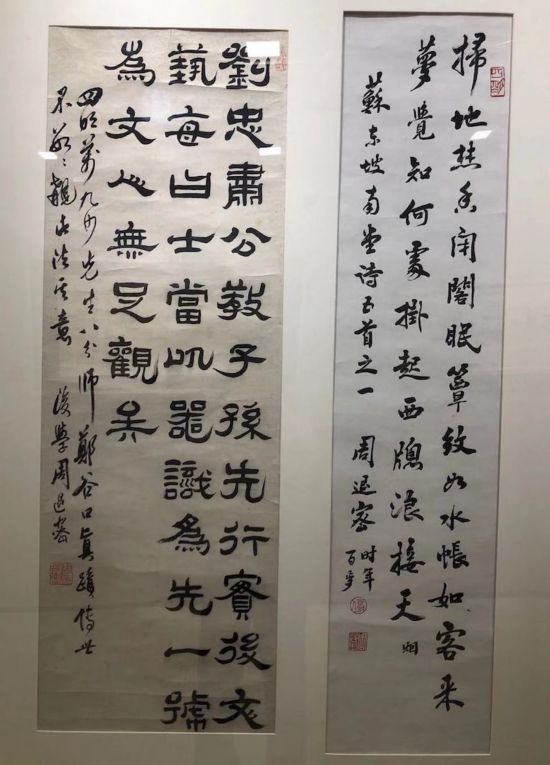 掃地焚香閉閣眠簟紋如水帳如客来
夢覺知何處掛起西牕浪接天烟
蘇东坡南堂诗五首之一 周退密 时年百岁
劉忠肅公教子孫先行實後文
藝每曰士當以器識為先一號
為文人無足觀矣
四明萬九沙先生八分师鄭谷口真蹟傳世
不覯法其意 後學周退密